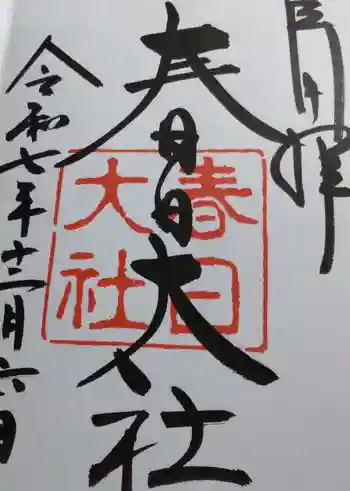 春日大社
春日
大社
令和七年十二月六日